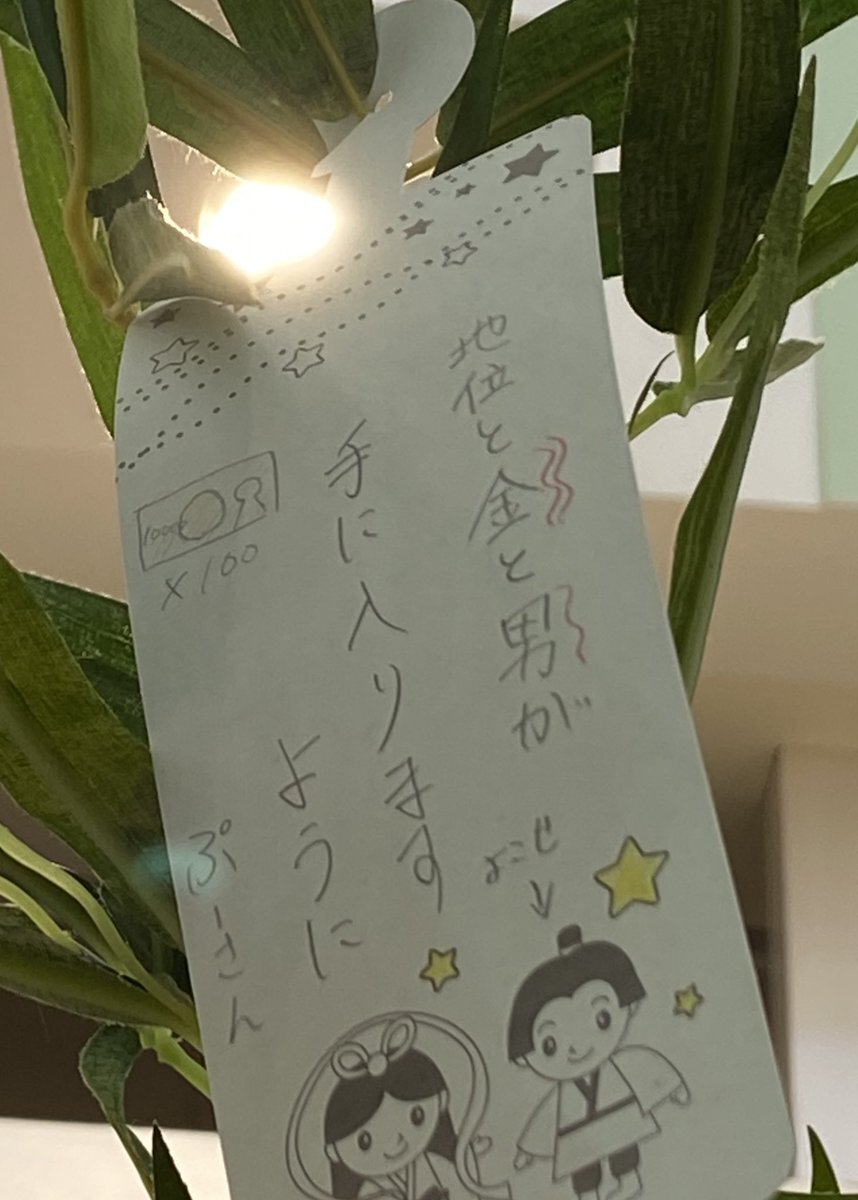 地位と金と男が
手に入ります
ように
ぷーさん
×100